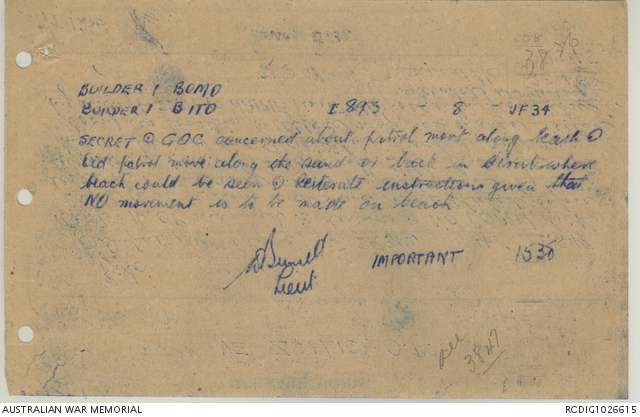 208
38
BUILDER 1 BOMO
BUILDER 1 BITO I.893 - 8 - JF34
SECRET ⊙ G.O.C. concerned about patrol mov't along beach ⊙
Did patrol move along the sand or back in scrub where
beach could be seen ⊙ Reiterate instructions given that
NO movement is to be made on beach
IMPORTANT 1530
Lieut
3847
AUSTRALIAN WAR MEMORIAL RCDIG1026615